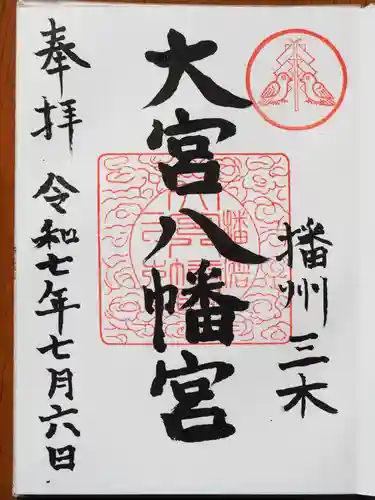 播州三木
大宮八幡宮
奉拝
令和七年七月六日